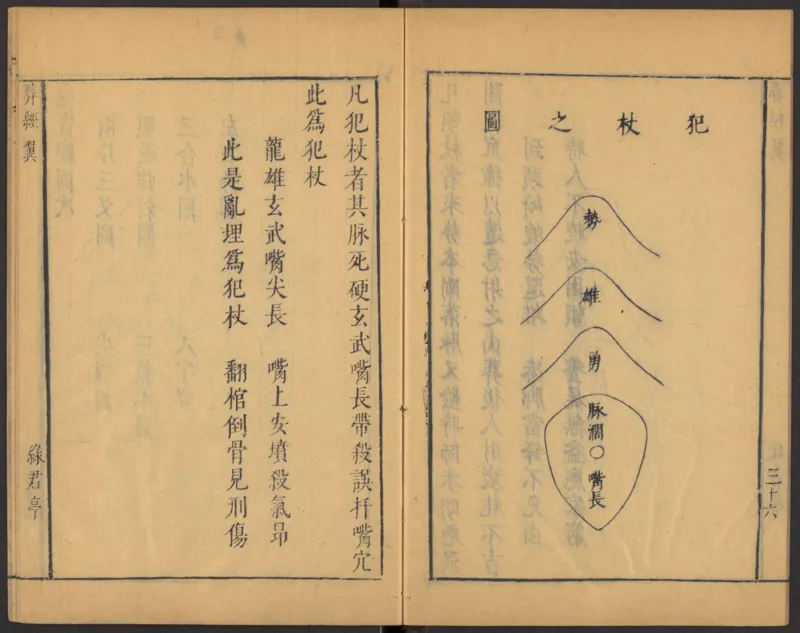 犯杖之圖
勢
雄
勇
脉濶○嘴長
三十六
凡犯杖者其脉死硬玄武嘴長帶殺誤扦嘴穴
此爲犯杖
龍雄玄武嘴尖長　嘴上安墳殺氣昂
此是亂埋爲犯杖　翻棺倒骨見刑傷
葬經翼
綠君亭